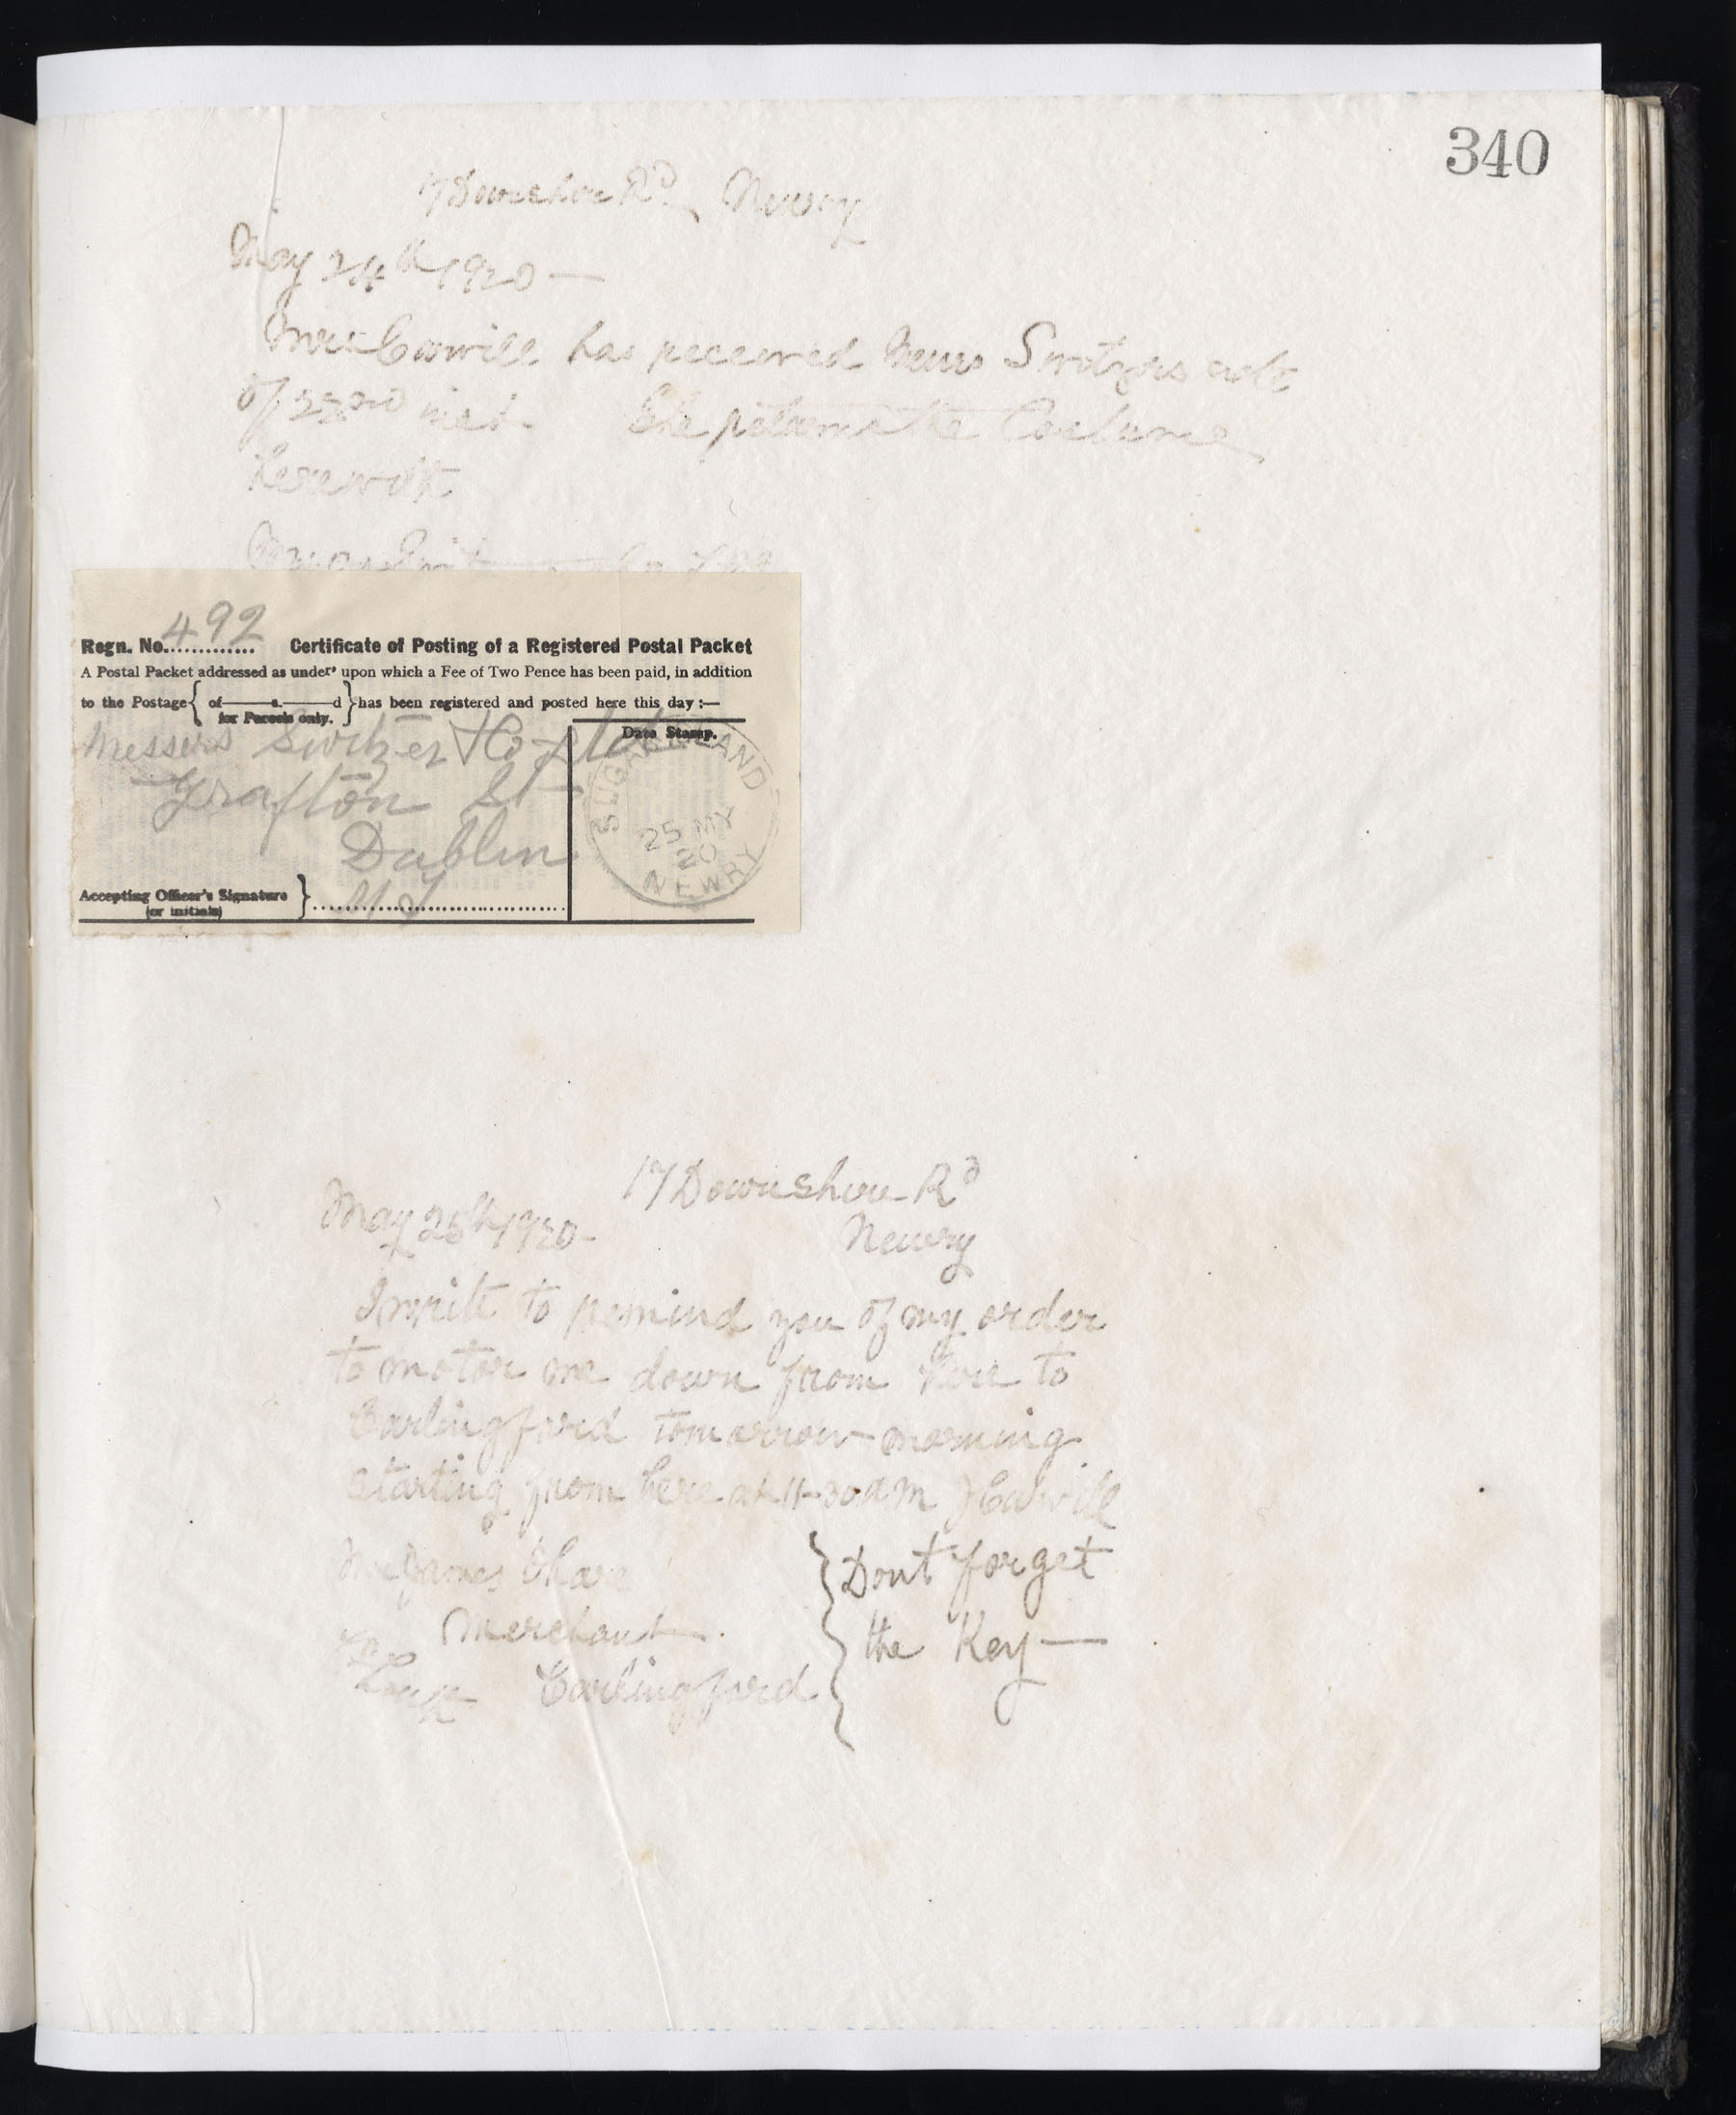 340
17 Downshire Rd. Newry
May 24th 1920 —
Mrs Cowill has received Messrs Switzers note
of 22nd inst. She returns the Costume
herewith
Regn. No. 492 Certificate of Posting of a Registered Postal Packet
A Postal Packet addressed as under, upon which a Fee of Two Pence has been paid, in addition
to the Postage { of — s. — d } has been registered and posted here this day :—
for Parcels only.
Date Stamp.
Messers Switzer & Co Ltd
Grafton St
Dublin
Accepting Officer's Signature
(or initials)
25 MY
20
NEWRY
17 Downshire Rd
May 25th 1920 -
Newry
I write to remind you of my order
to motor me down from here to
Carlingford tomorrow morning
starting from here at 11-30 AM
Mr James
Merchant.
Carlingford
Dont forget
the Key —